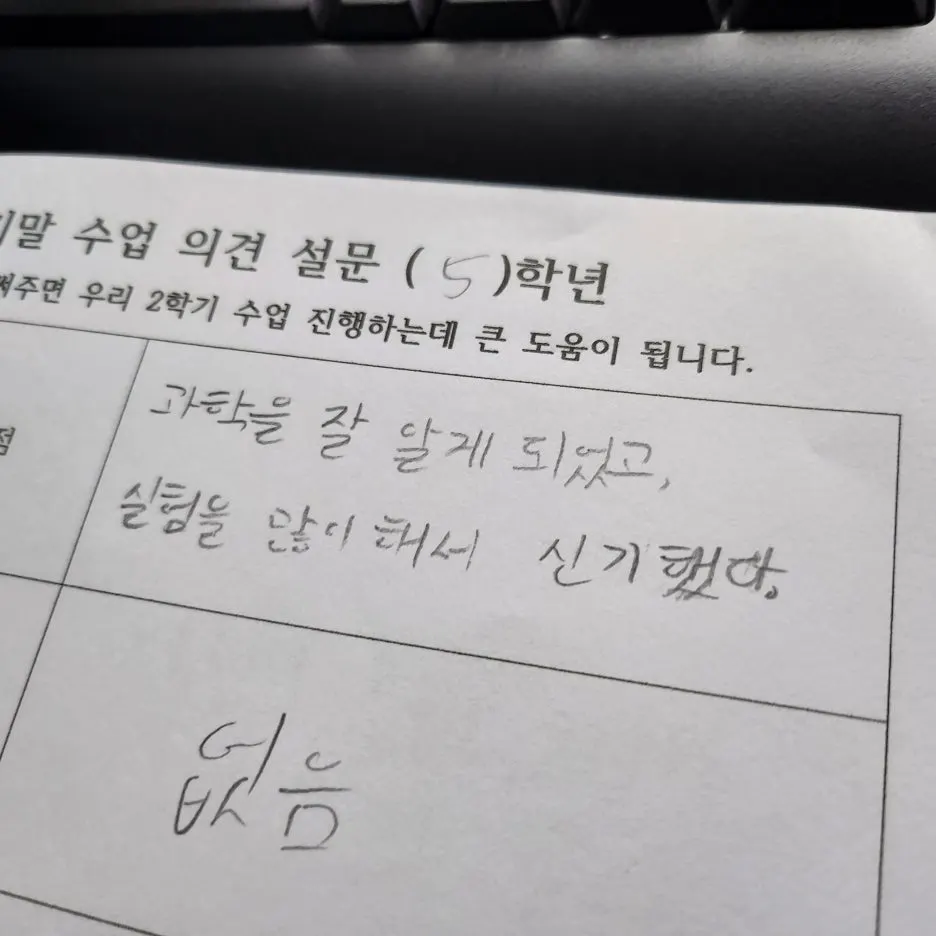 기말 수업 의견 설문 ( 5 )학년
써주면 우리 2학기 수업 진행하는데 큰 도움이 됩니다.
과학을 잘 알게 되었고,
점
실험을 많이 해서 신기했다.
없음